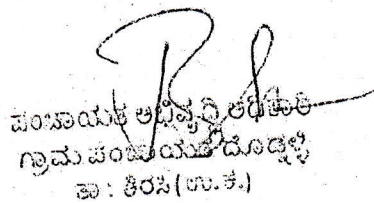 ಪಂಚಾಯತ ಅಭಿವೃದ್ಧಿ ಅಧಿಕಾರಿ
ಗ್ರಾಮ ಪಂಚಾಯತ ದೊಡ್ನಳ್ಳಿ
ತಾ : ಶಿರಸಿ (ಉ.ಕ.)